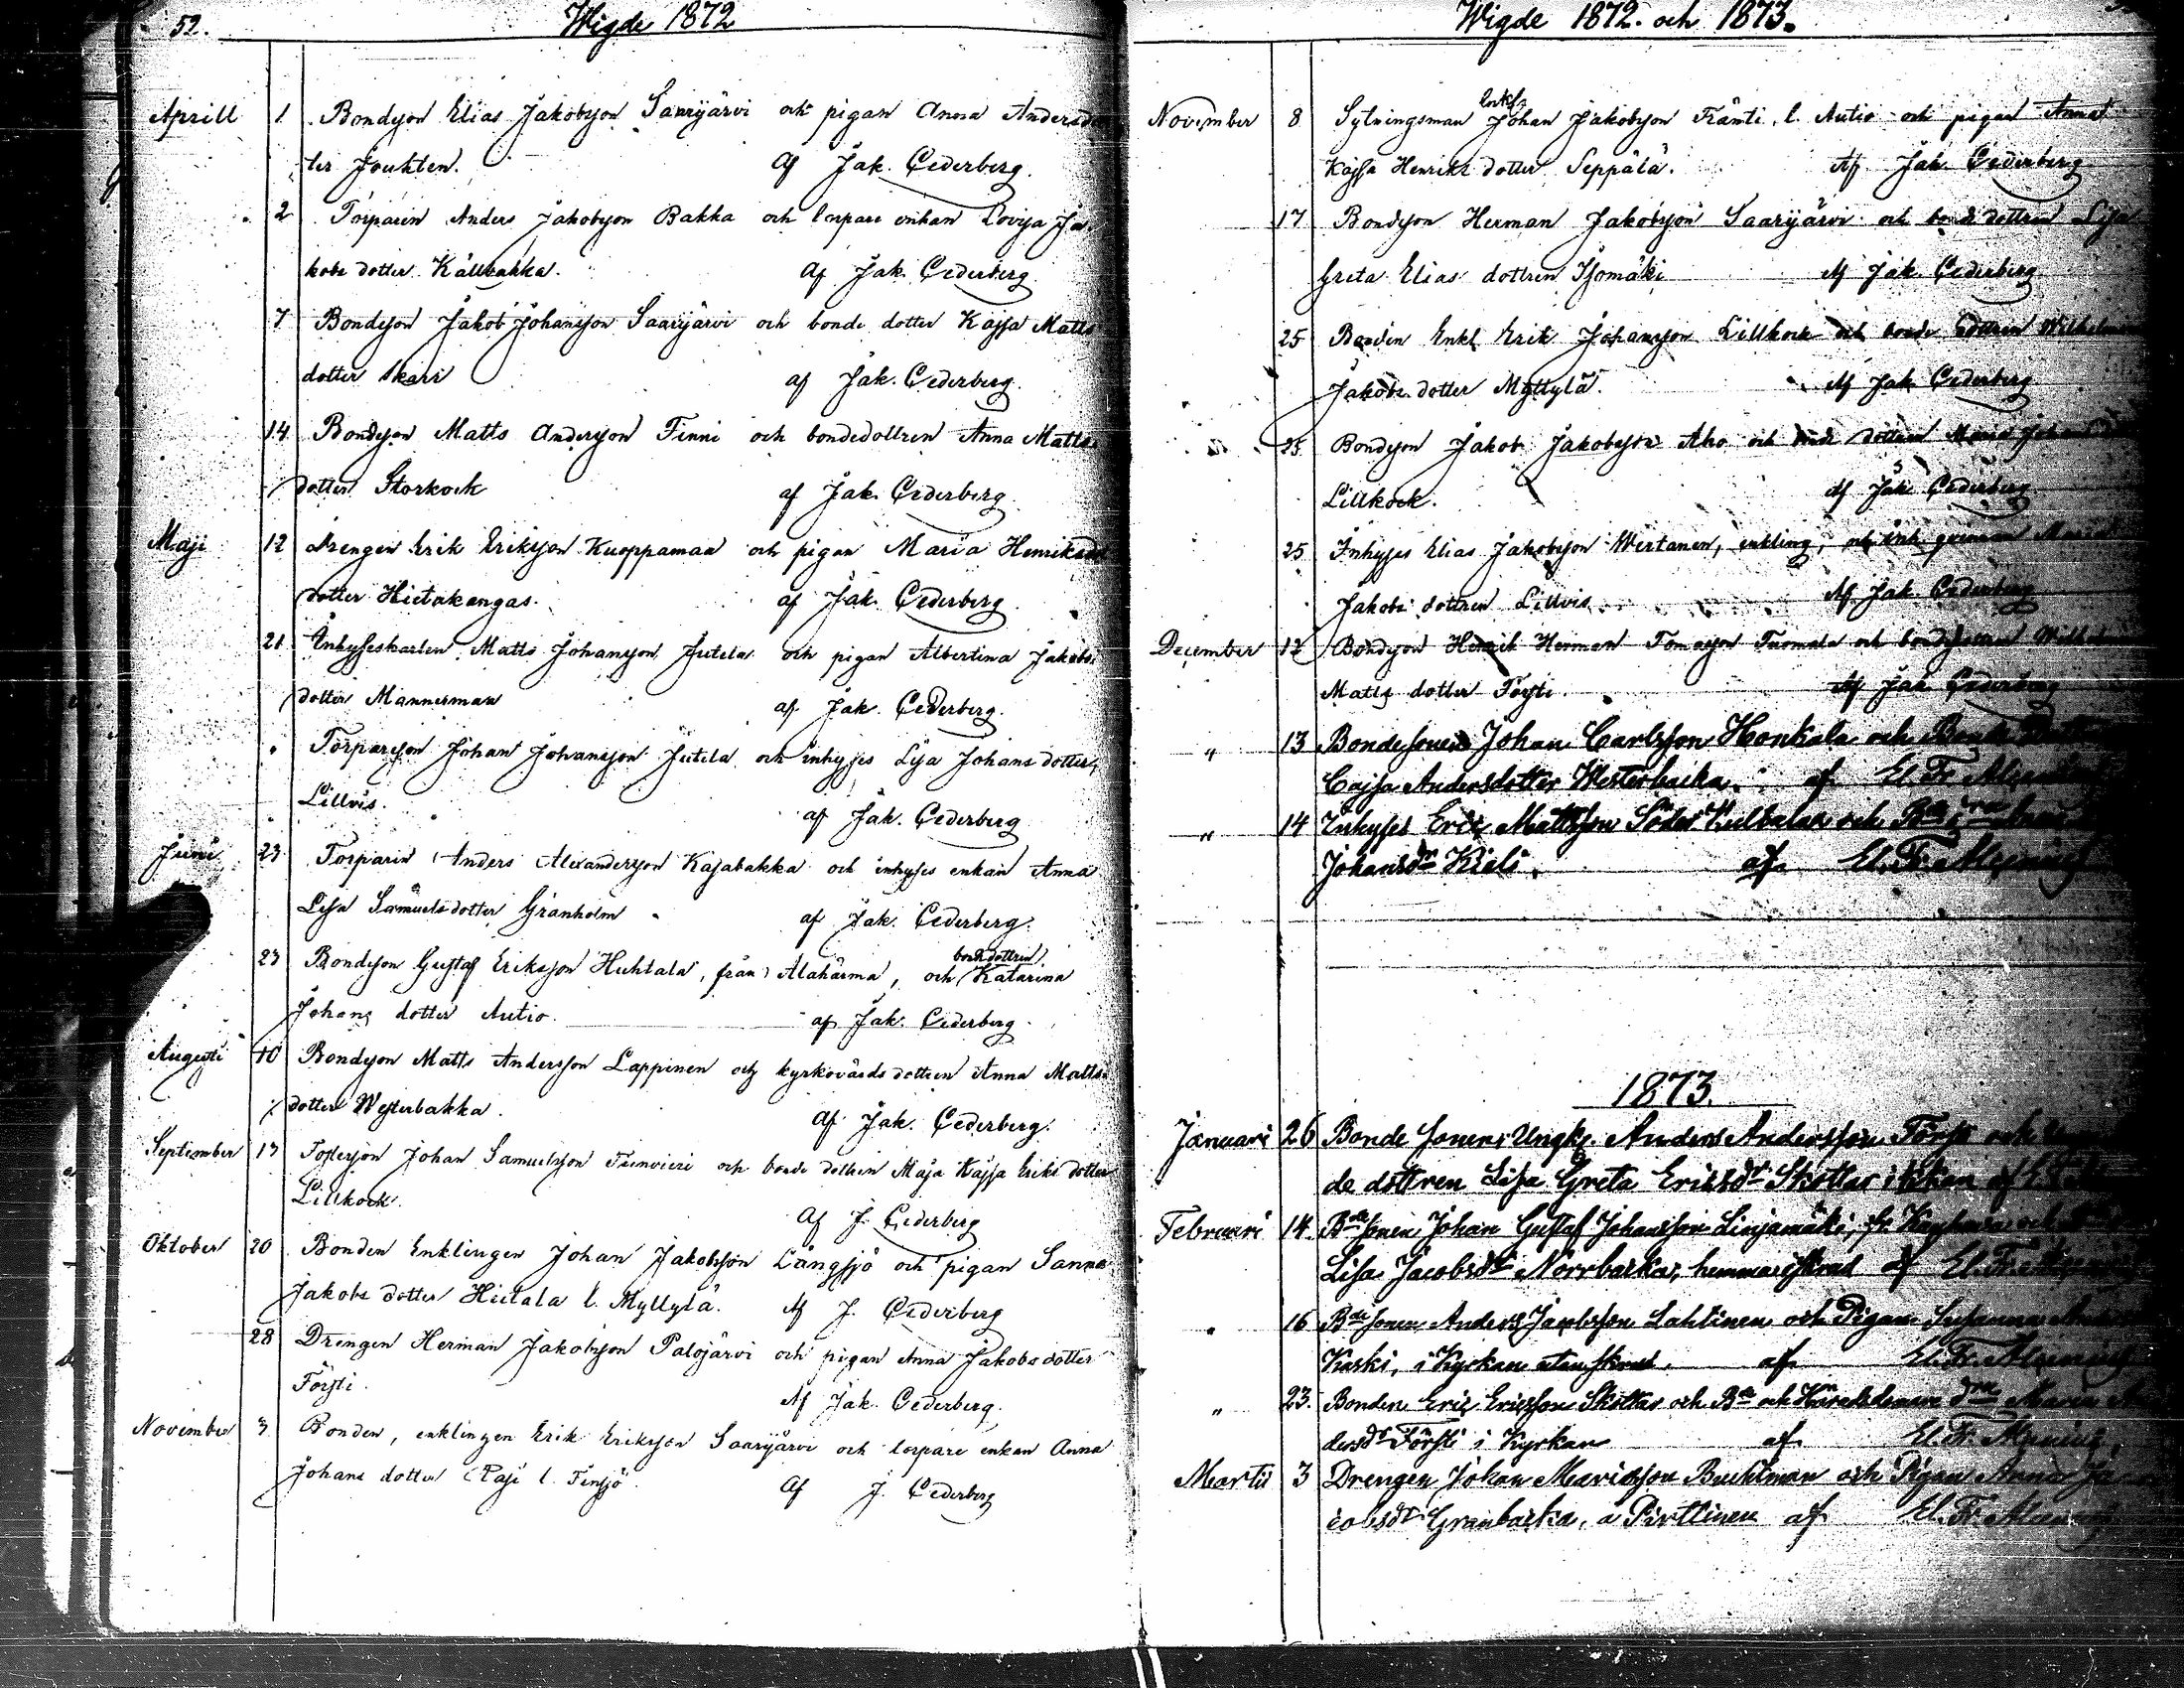 52.
Wigde 1872
Aprill 1. Bondeson Elias Jakobsson Saarijärvi och pigan Anna Andersdo
ter Jouhten. Af Jak. Cederberg.
2 Torparen Anders Jakobsson Bakka och torpare enkan Lovisa Ja
kobs dotter Kållbakka. Af Jak. Cederberg
7 Bondeson Jakob Johansson Saarijärvi och bonde dotter Kajsa Matts
dotter Skari af Jak. Cederberg.
14 Bondeson Matts Andersson Finni och bondedottren Anna Matts
dotter Storkock af Jak. Cederberg.
Maji 12 Drengen Erik Eriksson Kuoppamaa och pigan Maria Henriks
dotter Hietakangas. af Jak. Cederberg
21 Inhyseskarlen Matts Johansson Jutela och pigan Albertina Jakobs
dotter Mannerman af Jak. Cederberg.
" Torparson Johan Johansson Jutela och inhyses Lisa Johans dotter
Lillvis. af Jak. Cederberg
Juni 23 Torparen Anders Alexandersson Kajabakka och inhyses enkan Anna
Lisa Samuels dotter Granholm af Jak. Cederberg.
23 Bondeson Gustaf Eriksson Huhtala, från Alahärma, och bondedottren Katarina
Johans dotter Autio. af Jak. Cederberg.
Augusti 10 Bondeson Matts Andersson Lappinen och kyrkovärds dottren Anna Matts
dotter Westerbakka. Af Jak. Cederberg.
September 13 Johan Samuelsson och bonde dottren Maja Kajsa Eriks dotter
Lillkock. Af J. Cederberg
Oktober 20 Bonden Enklingen Johan Jakobsson Långsjö och pigan Sanna
Jakobs dotter Hietala l. Myllylä. Af J. Cederberg
28 Drengen Herman Jakobsson Palojärvi och pigan Anna Jakobs dotter
Försti. Af Jak. Cederberg.
November 3 Bonden, enklingen Erik Eriksson Saarijärvi och torpare enkan Anna
Johans dotter Pasi l. Finsjö. Af J. Cederberg
Wigde 1872. och 1873.
November 8 Sytningsman enkl. Johan Jakobsson Fränti l. Autio och pigan Anna
Kajsa Henriks dotter Seppälä. Af Jak. Cederberg
17 Bondeson Herman Jakobsson Saarijärvi och bonde dottren Lisa
Greta Elias dottren Isomäki Af Jak. Cederberg
25 Bonden Enkl. Erik Johansson Lillkock och bonde dottren Wilhelmina
Jakobs dotter Myllylä. Af Jak. Cederberg
25 Bondeson Jakob Jakobsson Aho och bonde dottren Maria
Lillkock. Af Jak. Cederberg
25 Inhyses Elias Jakobsson Wirtanen, enkling, och inh. qvinnan Maria
Jakobs dottren Lillvis. Af Jak. Cederberg
December 12 Bondeson Henrik Herman Tomasson Tuomala och
Matts dotter Försti. Af Jak. Cederberg
" 13 Bondesonen Johan Carlsson Honkala och Bonde
Cajsa Andersdotter Westerbacka. af El. Fr.
" 14 Inhyses Eric Mattsson Söder och
Johansdr Kieli. af El. Fr.
1873.
Januari 26 Bonde sonen Ungk. Anders Andersson Försti och
de dottren Lisa Greta Ericsdr Skottar i Kkan af
Februari 14. Bde sonen Johan Gustaf Johansson Linjamäki, fr. Kauhava och
Lisa Jacobsdr Norrbacka, hemma i skrud af El. Fr.
" 16 Bde sonen Anders Jacobsson Lahtinen och Pigan Susanna
Kaski, i Kyrkan utan skrud. af El. Fr.
" 23. Bonden Eric Ericsson Skottar och Bde och Häradsdomare Maria
dersdr Försti i Kyrkan af El. Fr.
Martii 3 Drengen Johan Mariasson Buchtman och Pigan Anna Ja
cobsdr Granbacka, a Pirttinen af El. Fr.